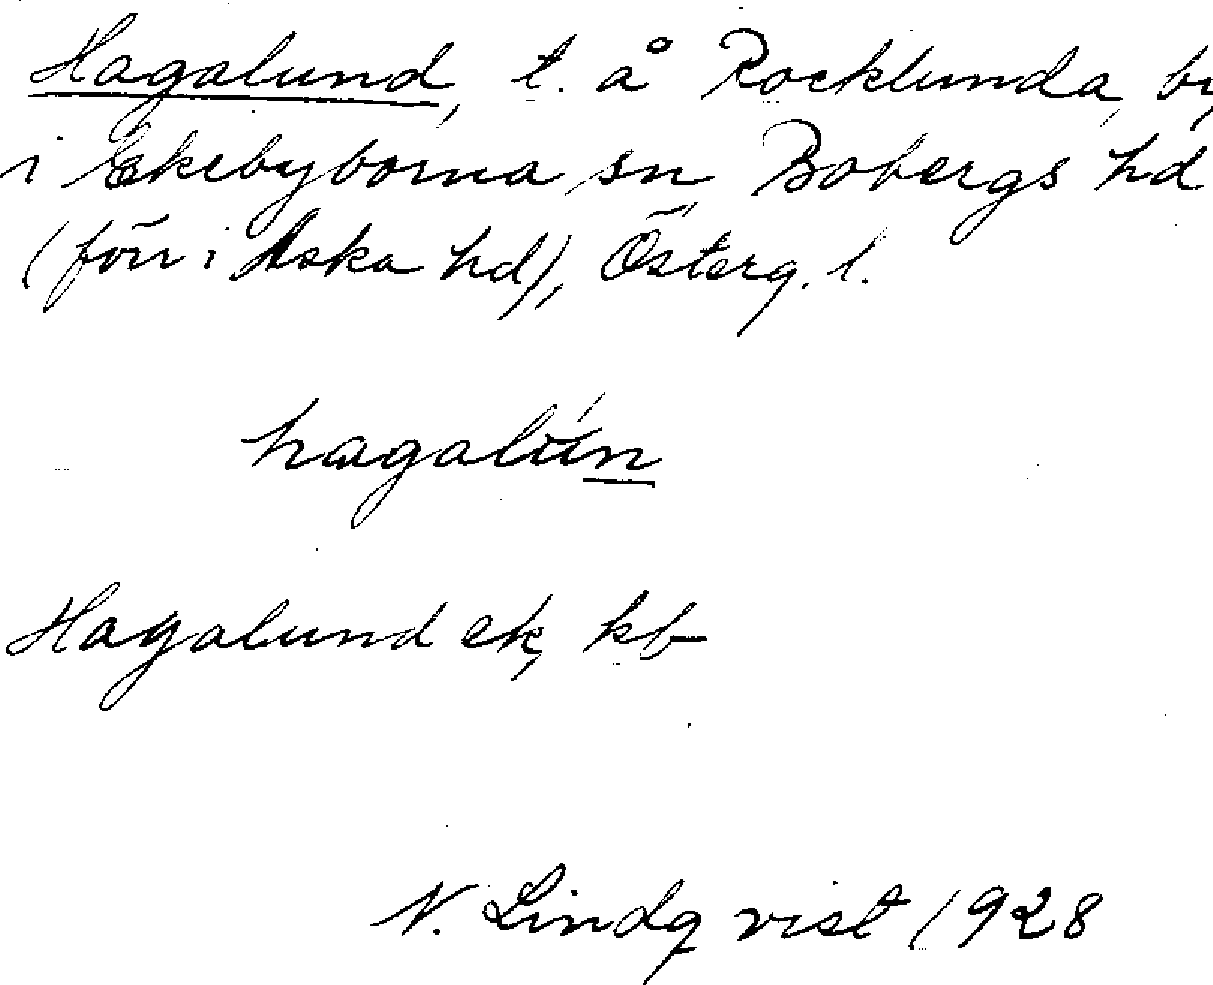 Hagalund, t. å Rocklunda, by
i Ekebyborna sn, Bobergs hd
(förr i Aska hd), Österg. l.
hagalún
Hagalund ek, kb
N. Lindqvist 1928